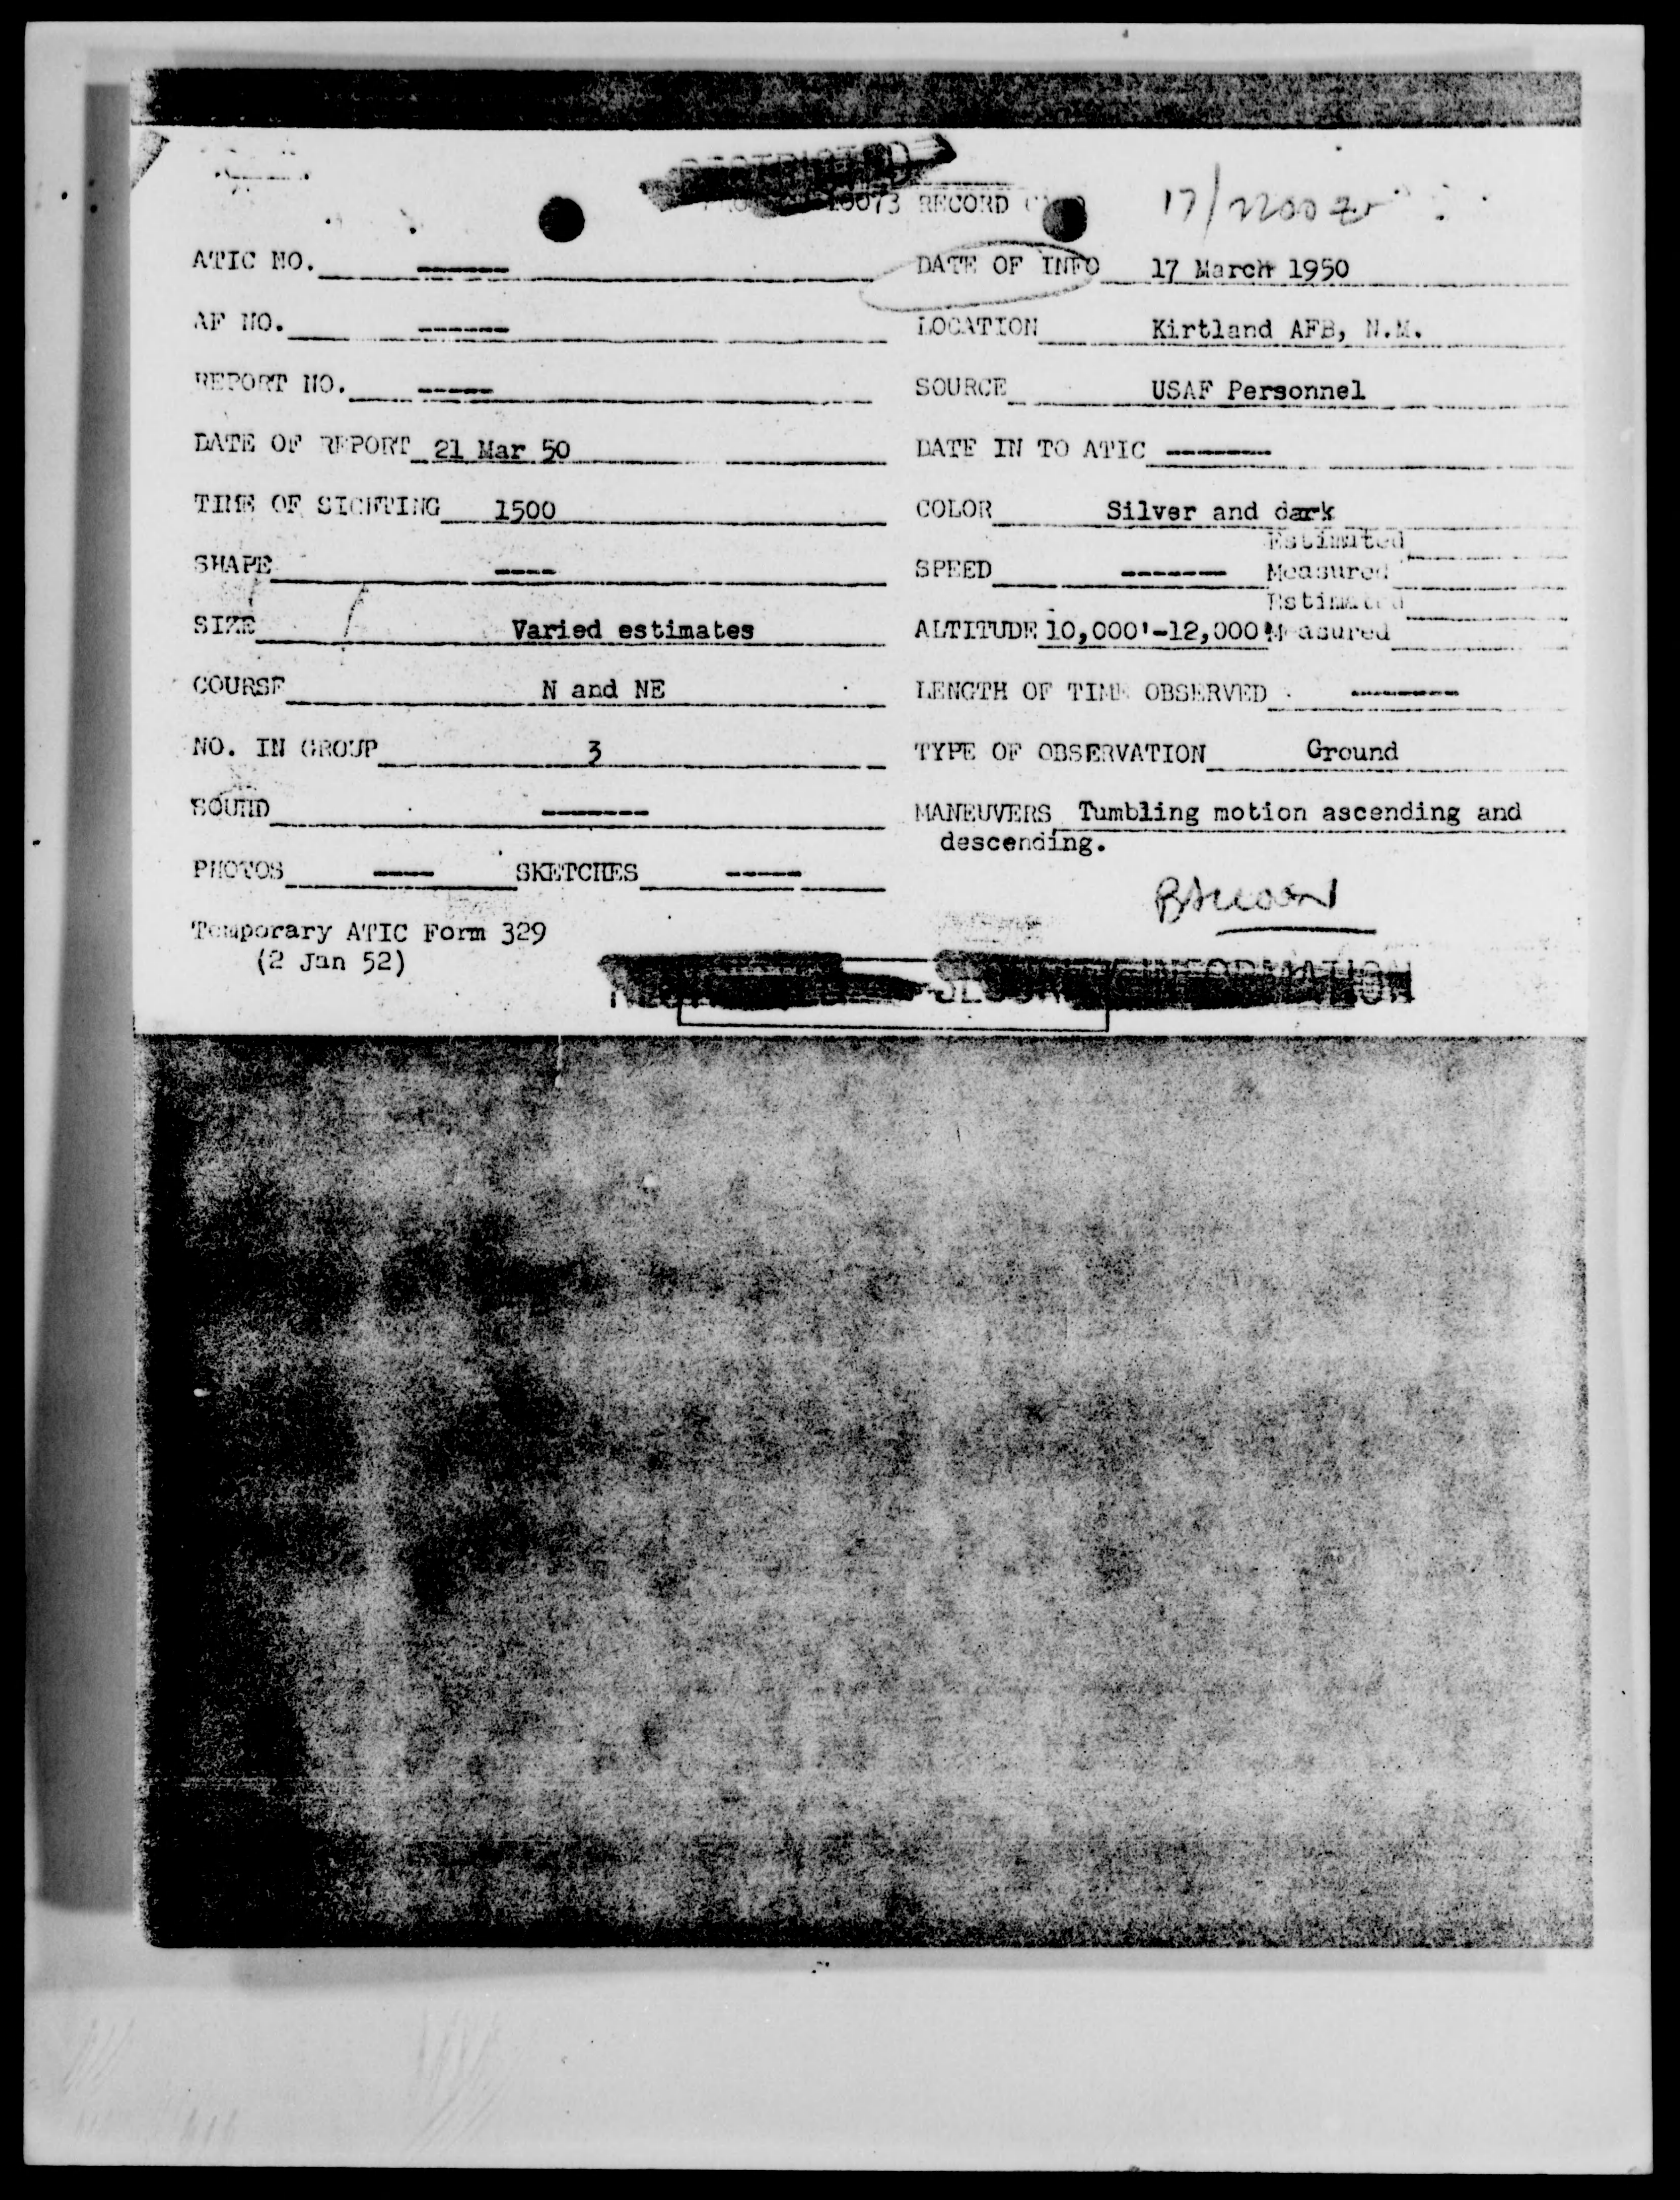 10073 RECORD
17/2200Z
ATIC NO. ------ DATE OF INFO 17 March 1950
AF NO. ------ LOCATION Kirtland AFB, N.M.
REPORT NO. ----- SOURCE USAF Personnel
DATE OF REPORT 21 Mar 50 DATE IN TO ATIC -------
TIME OF SIGHTING 1500 COLOR Silver and dark
Estimated
SHAPE ---- SPEED ------- Measured
Estimated
SIZE Varied estimates ALTITUDE 10,000'-12,000' Measured
COURSE N and NE LENGTH OF TIME OBSERVED -------
NO. IN GROUP 3 TYPE OF OBSERVATION Ground
SOUND ------- MANEUVERS Tumbling motion ascending and
descending.
PHOTOS ---- SKETCHES -----
Temporary ATIC Form 329
(2 Jan 52)
INFORMATION